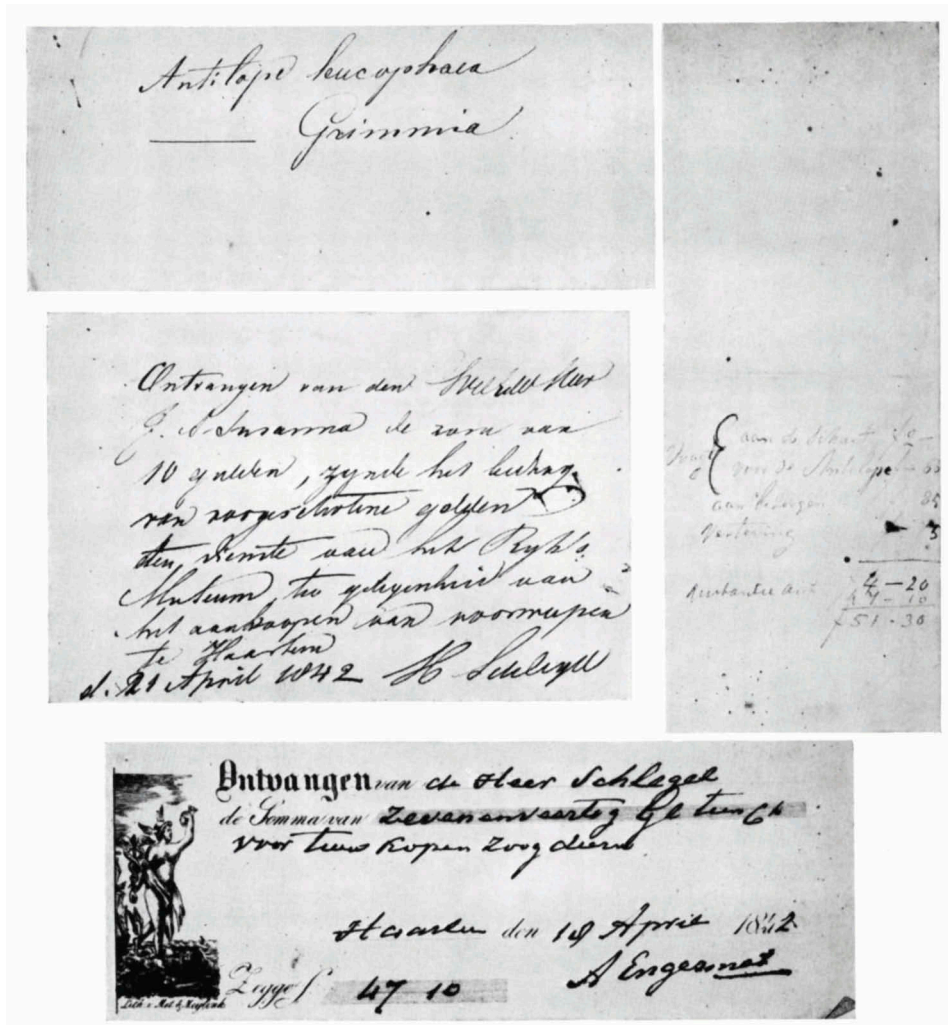 Antilope leucophaea
——— Grimmia
Ontvangen van den Heer
J. A. Susanna de som van
10 gulden, zynde het bedrag
van voorgeschotene gelden
ten dienste van het Ryks
Museum, ter gelegenheid van
het aankoopen van voorwerpen
te Haarlem
d. 21 April 1842 H Schlegel
aan de
voor de Antilope
aan
vertering 3
4 – 20
47 – 10
f 51 - 30
Ontvangen van de Heer Schlegel
de Somma van Zevenenveertig Gl tien Ch
voor twee Kopen Zoogdiern
Haarlem den 18 April 1842
A Engesmet
Zegge f 47 10
Lith. v.